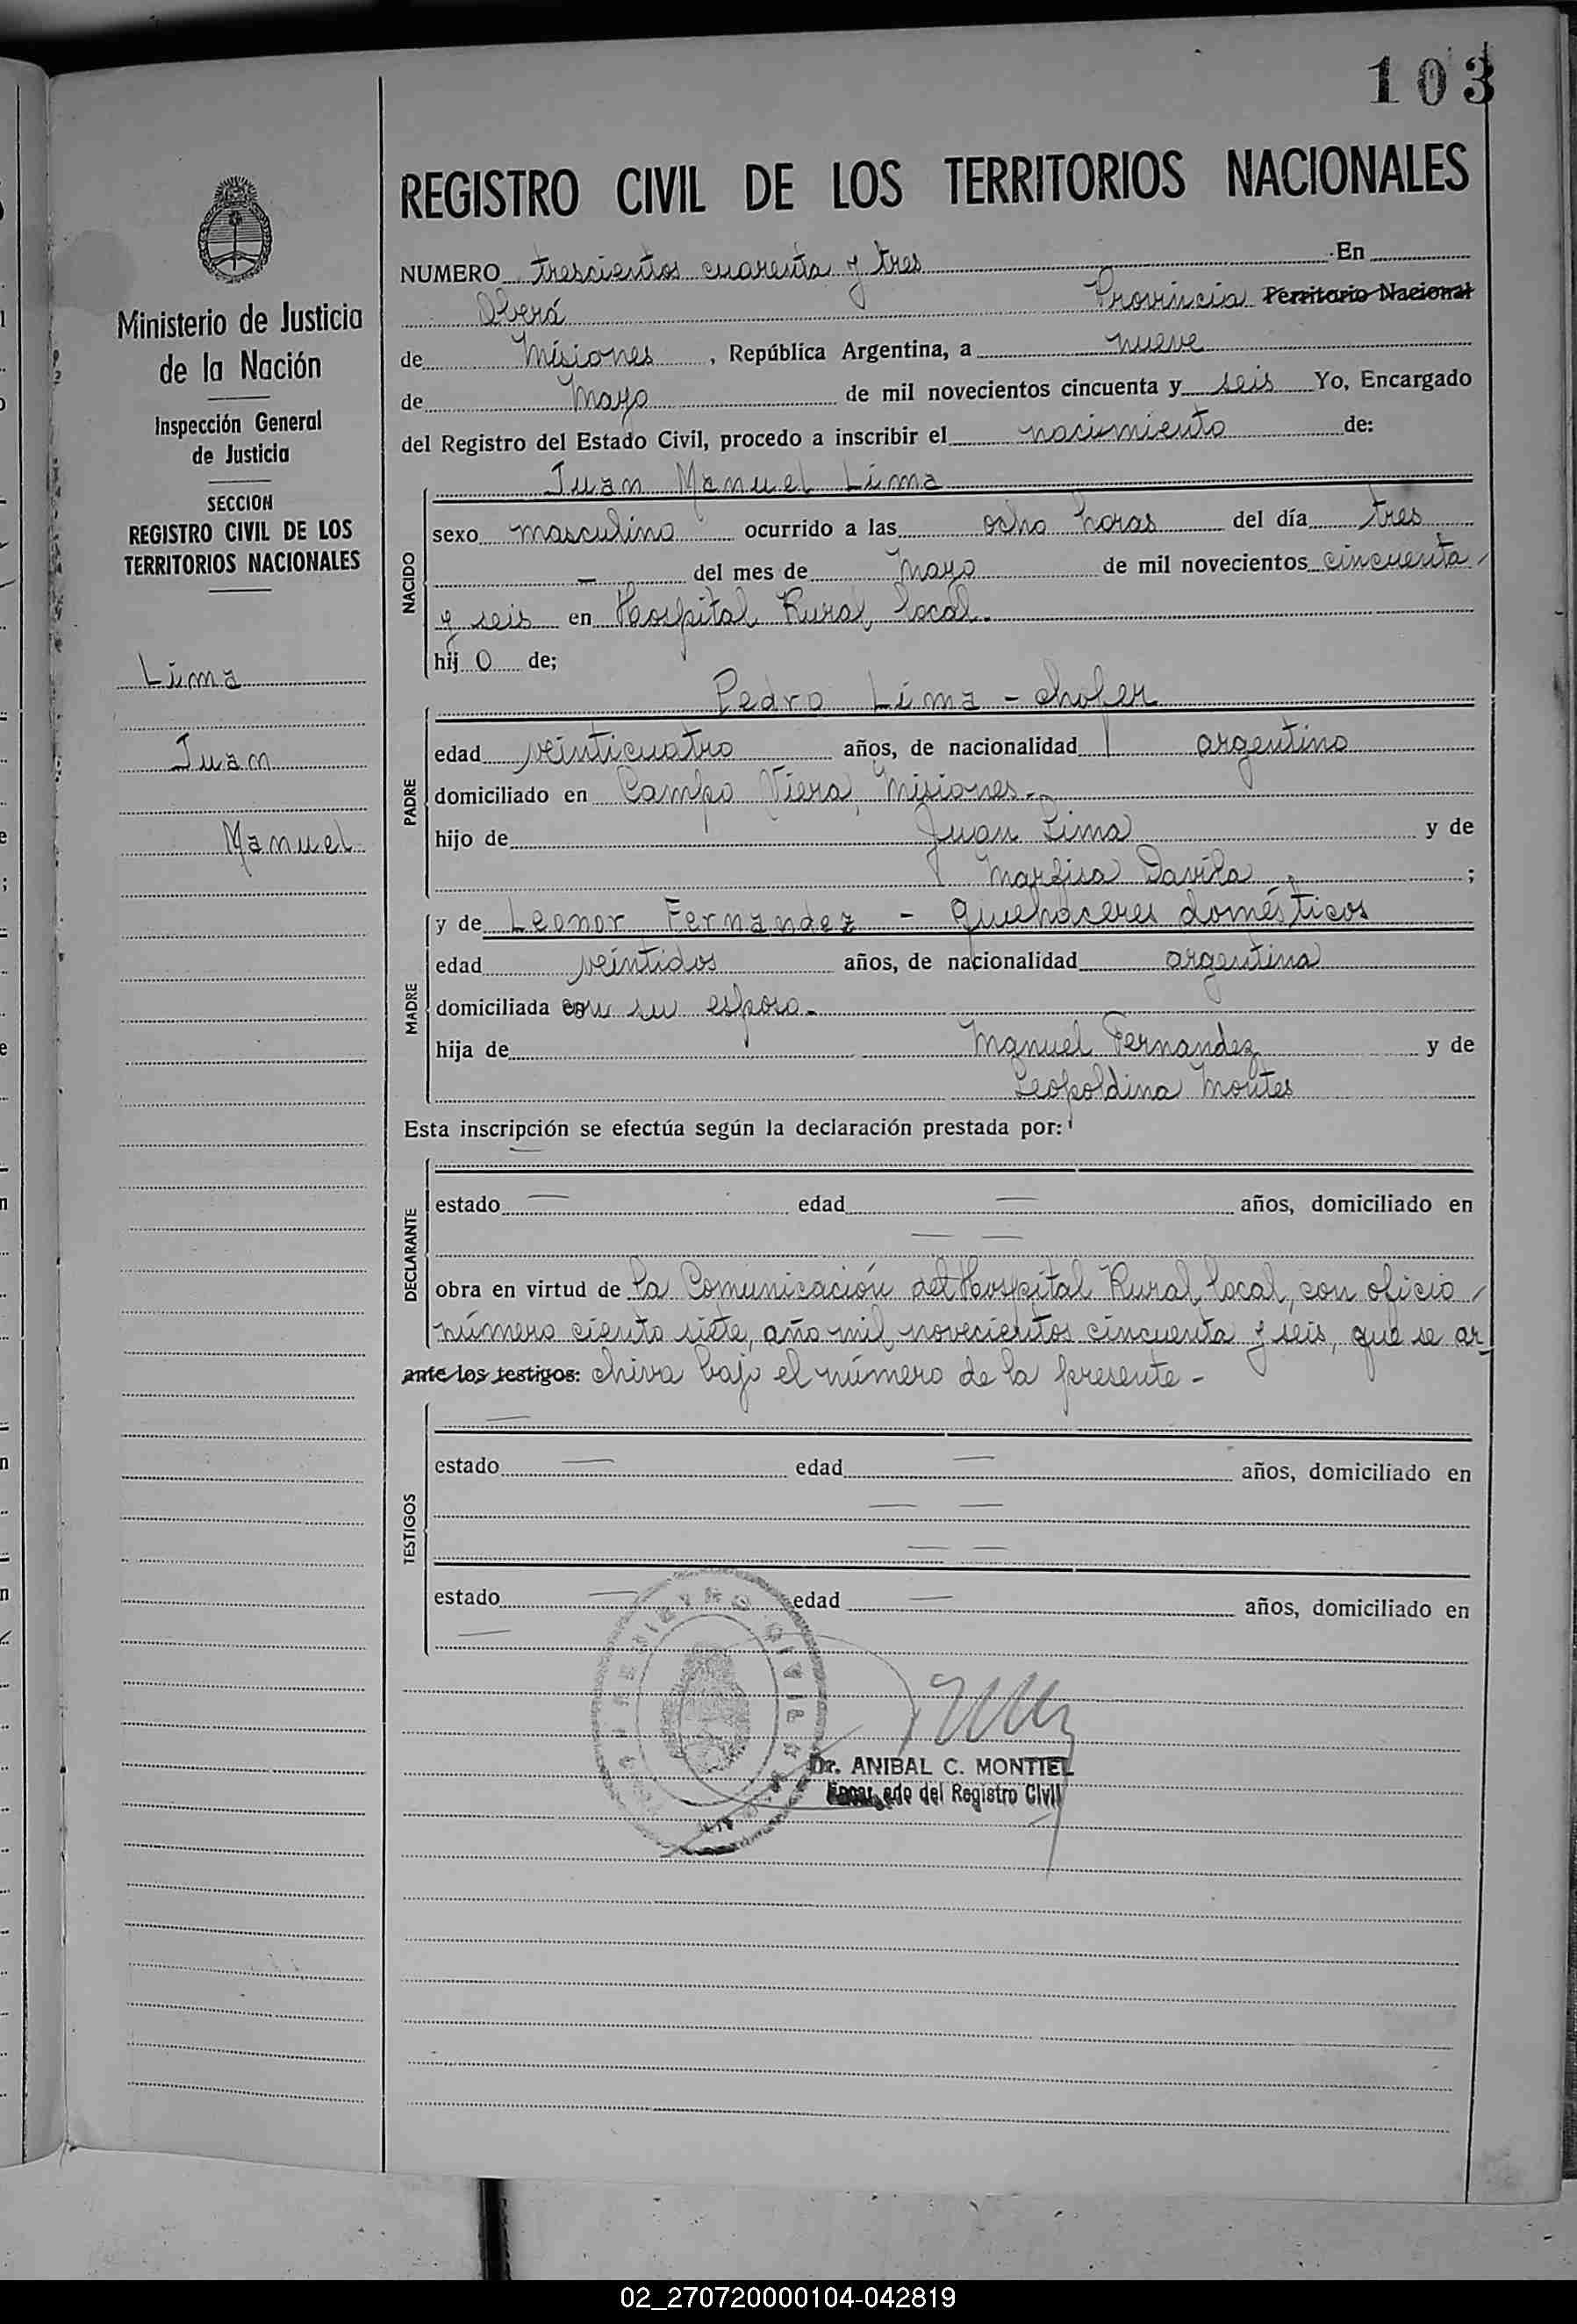 103
REGISTRO CIVIL DE LOS TERRITORIOS NACIONALES
Ministerio de Justicia
de la Nación
Inspección General
de Justicia
SECCION
REGISTRO CIVIL DE LOS
TERRITORIOS NACIONALES
Lima
Juan
Manuel
NUMERO trescientos cuarenta y tres En
Oberá Provincia Territorio Nacional
de Misiones, República Argentina, a nueve
de Mayo de mil novecientos cincuenta y seis Yo, Encargado
del Registro del Estado Civil, procedo a inscribir el nacimiento de:
NACIDO
Juan Manuel Lima
sexo masculino ocurrido a las ocho horas del día tres
— del mes de Mayo de mil novecientos cincuenta
y seis en Hospital Rural, local.
hij o de;
PADRE
Pedro Lima - chofer
edad veinticuatro años, de nacionalidad argentino
domiciliado en Campo Viera, Misiones.-
hijo de Juan Lima y de
Davila ;
MADRE
y de Leonor Fernandez - Quehaceres domésticos
edad veintidos años, de nacionalidad argentina
domiciliada con su esposo.-
hija de Manuel Fernandez y de
Leopoldina Montes
Esta inscripción se efectúa según la declaración prestada por:
DECLARANTE
—
estado — edad — años, domiciliado en
— —
obra en virtud de la Comunicación del Hospital Rural, local, con oficio
número ciento siete, año mil novecientos cincuenta y seis, que se ar-
ante los testigos: chiva bajo el número de la presente -
TESTIGOS
—
estado — edad — años, domiciliado en
— —
— —
estado — edad — años, domiciliado en
—
REGISTRO CIVIL
Dr. ANIBAL C. MONTIEL
Encargado del Registro Civil
02_270720000104-042819